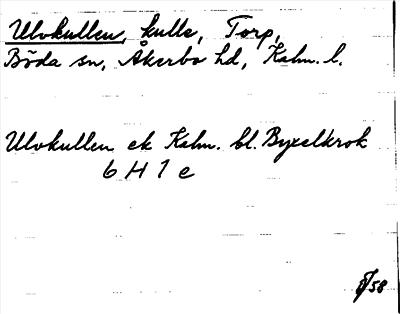 Ulvkullen, kulle, Torp,
Böda sn, Åkerbo hd, Kalm. l.
Ulvkullen ek Kalm. bl. Byxelkrok
6 H 1 e
/58